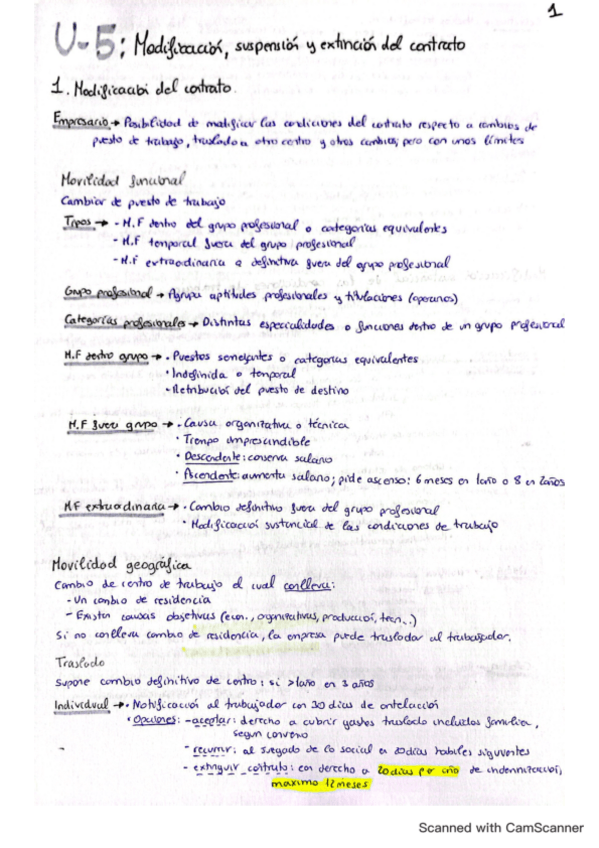 1
U-5: Modificación, suspensión y extinción del contrato
1. Modificación del contrato.
Empresario → Posibilidad de modificar las condiciones del contrato respecto a cambios de
puesto de trabajo, traslado a otro centro y otros cambios, pero con unos límites
Movilidad funcional
Cambiar de puesto de trabajo
Tipos → - M.F dentro del grupo profesional o categorías equivalentes
- M.F temporal fuera del grupo profesional
- M.F extraordinaria o definitiva fuera del grupo profesional
Grupo profesional → Agrupa aptitudes profesionales y titulaciones (operarios)
Categorías profesionales → Distintas especialidades o funciones dentro de un grupo profesional
M.F dentro grupo → · Puestos semejantes o categorías equivalentes
· Indefinida o temporal
· Retribución del puesto de destino
M.F fuera grupo → · Causa organizativa o técnica
· Tiempo imprescindible
· Descendente: conserva salario
· Ascendente: aumenta salario; pide ascenso: 6 meses en 1año o 8 en 2años
MF extraordinaria → · Cambio definitivo fuera del grupo profesional
· Modificación sustancial de las condiciones de trabajo
Movilidad geográfica
Cambio de centro de trabajo el cual conlleva:
- Un cambio de residencia
- Existen causas objetivas (econ., organizativas, producción, tecn..)
Si no conlleva cambio de residencia, la empresa puede trasladar al trabajador.
Traslado
Supone cambio definitivo de centro: si >1año en 3 años
Individual → · Notificación al trabajador con 30 días de antelación
· Opciones: - aceptar: derecho a cubrir gastos traslado incluidos familia,
según convenio
- recurrir: al juzgado de lo social en 20días habiles siguientes
- extinguir contrato: con derecho a 20días por año de indemnización,
maximo 12 meses
Scanned with CamScanner